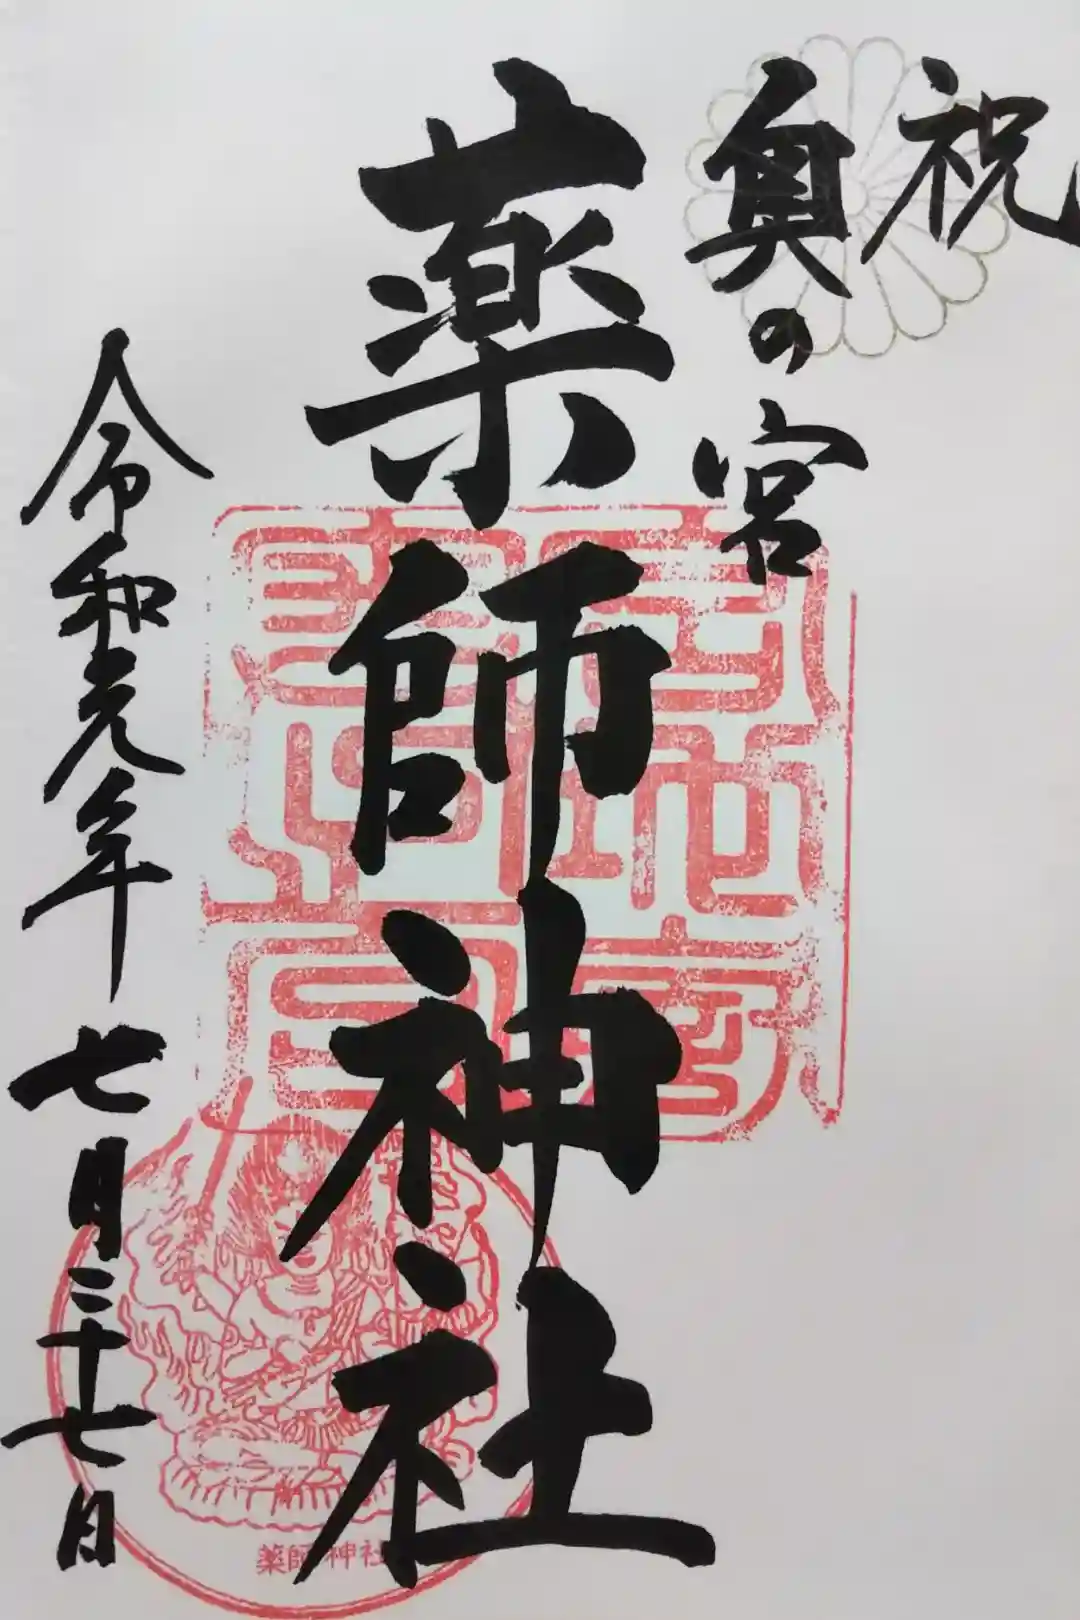 祝
奥の宮
薬師神社
令和元年七月二十七日
薬師神社